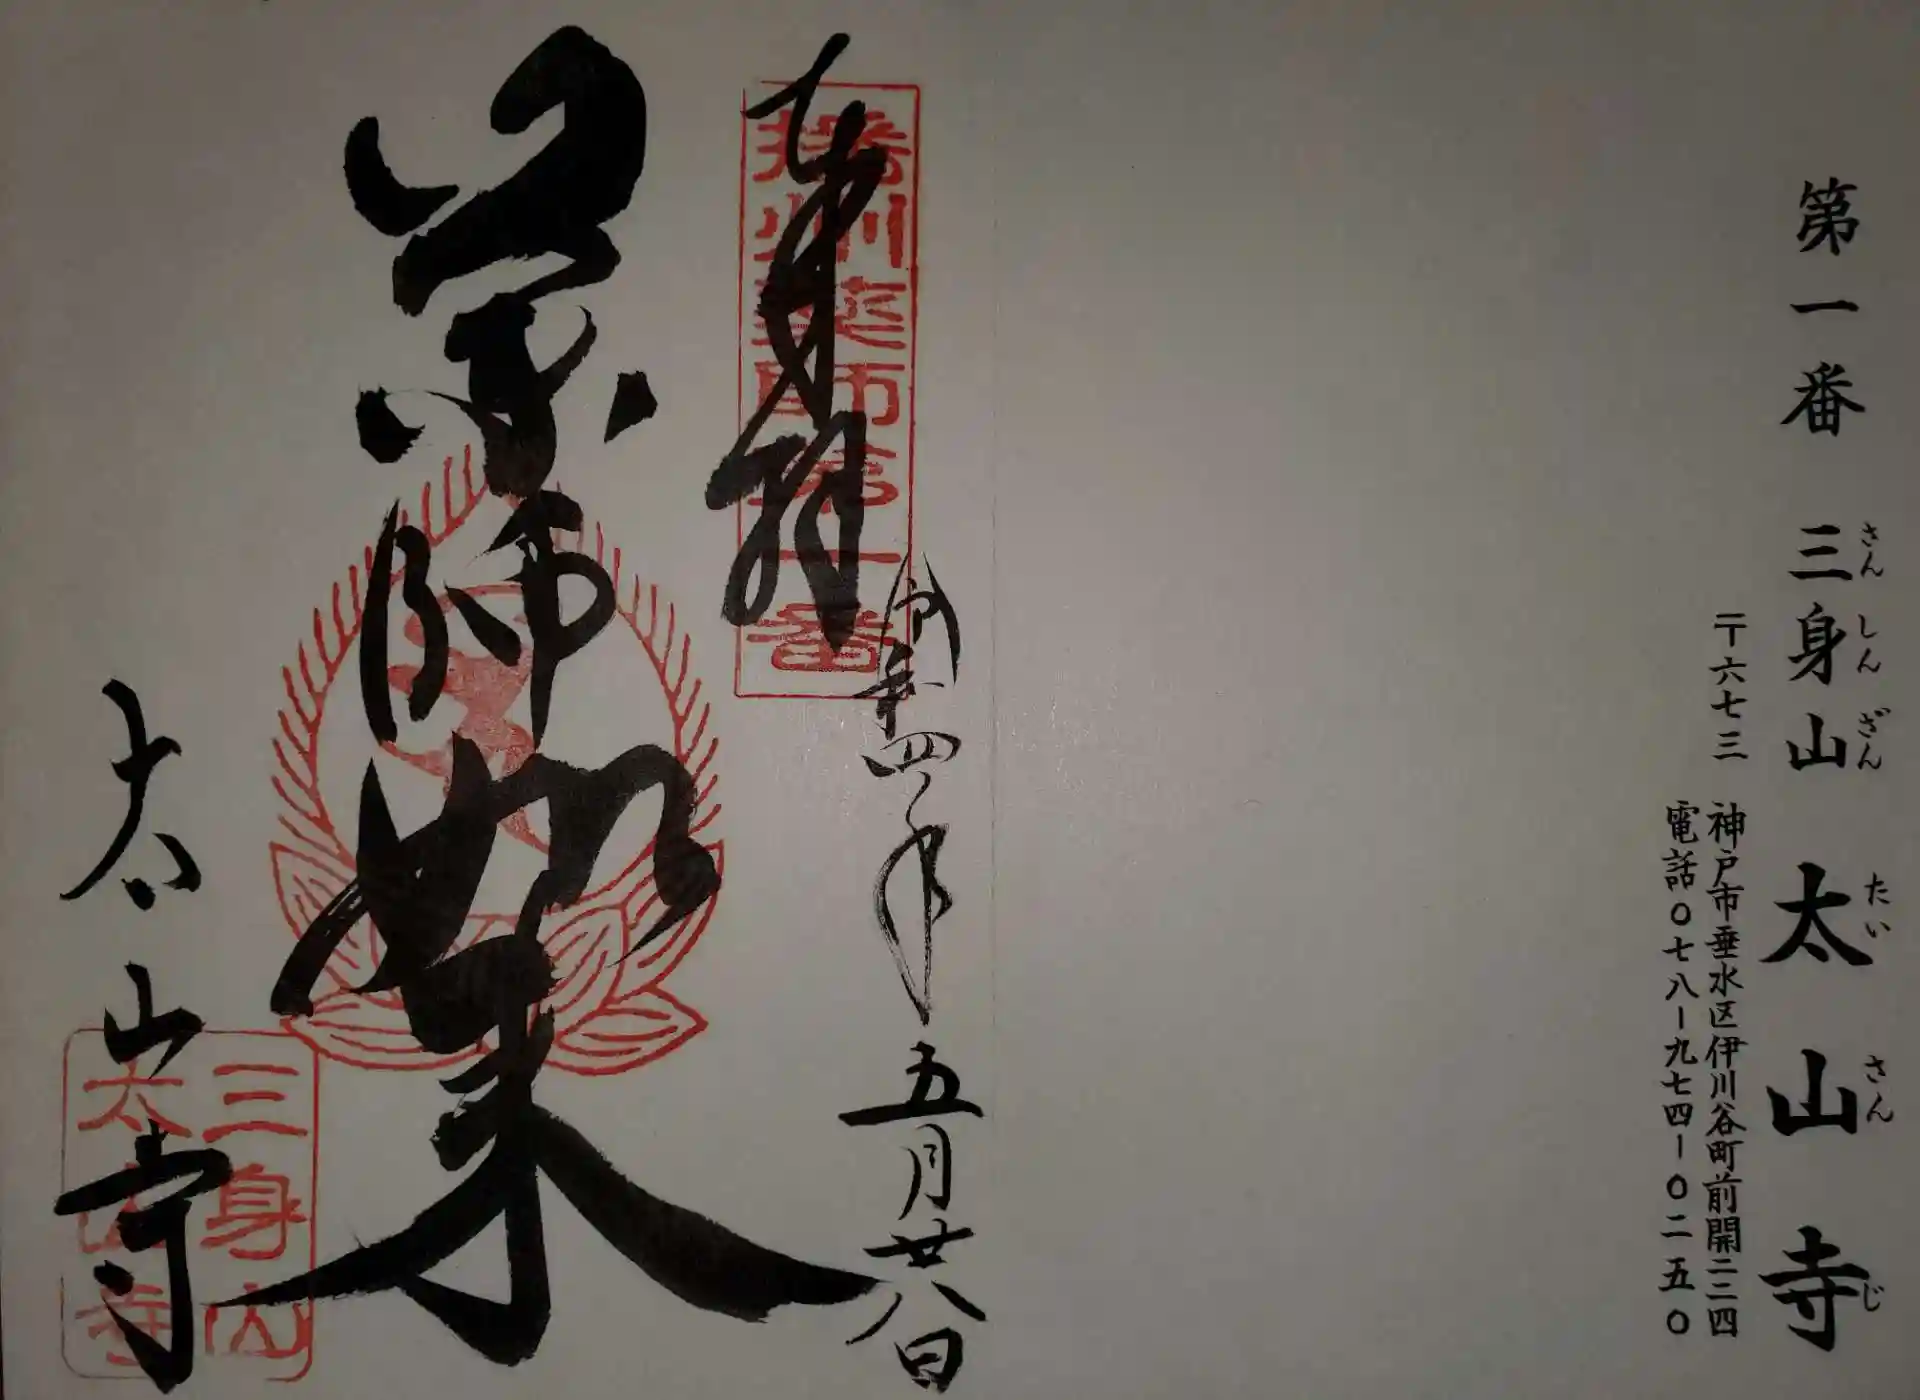 第一番 三身山 太山寺
さんしんざん たいさんじ
〒六七三 神戸市垂水区伊川谷町前開二二四
電話〇七八-九七四-〇二五〇
奉拝
播州薬師第一番
四年五月廿八日
薬師如来
太山寺
三身山
太山寺